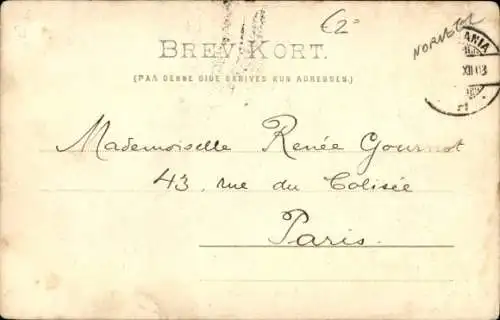 €2=
BREV-KORT.
(PAA DENNE SIDE SKRIVES KUN ADRESSEN.)
ANIA
XII 03
Mademoiselle Renée Gournot
43, rue du Colisée
Paris.